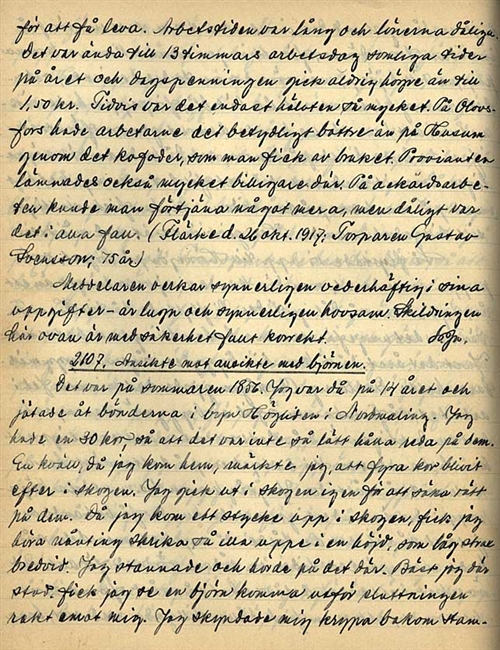 för att få leva. Arbetstiden var lång och lönerna dåliga.
Det var ända till 13 timmars arbetsdag somliga tider
på året och dagspenningen gick aldrig högre än till
1,50 kr. Tidvis var det endast hälften så mycket. På Olovs-
fors hade arbetarne det betydligt bättre än på
genom det kofoder, som man fick av bruket. Provianten
lämnades också mycket billigare där. På ackordsarbe-
ten kunde man förtjäna något mera, men dåligt var
det i alla fall. ( d. 26 okt. 1917; Torparen Gustav
Svensson; 75 år.)
Meddelaren verkar synnerligen vederhäftig i sina
uppgifter – är lugn och synnerligen hovsam. Skildringen
här ovan är med säkerhet fullt korrekt.
2107. Ansikte mot ansikte med björnen.
Det var på sommaren 1856. Jag var då på 14 året och
jätade åt bönderna i byn i Nordmaling. Jag
hade en 30 kor, så att det var inte så lätt hålla reda på dem.
En kväll, då jag kom hem, märkte jag, att fyra kor blivit
efter i skogen. Jag gick ut i skogen igen för att söka rätt
på dem. Då jag kom ett stycke upp i skogen, fick jag
höra nånting skrika så illa uppe i en höjd, som låg strax
bredvid. Jag stannade och hörde på det där. Bäst jag där
stod, fick jag se en björn komma utför sluttningen
rakt emot mig. Jag skyndade mig krypa bakom stam-